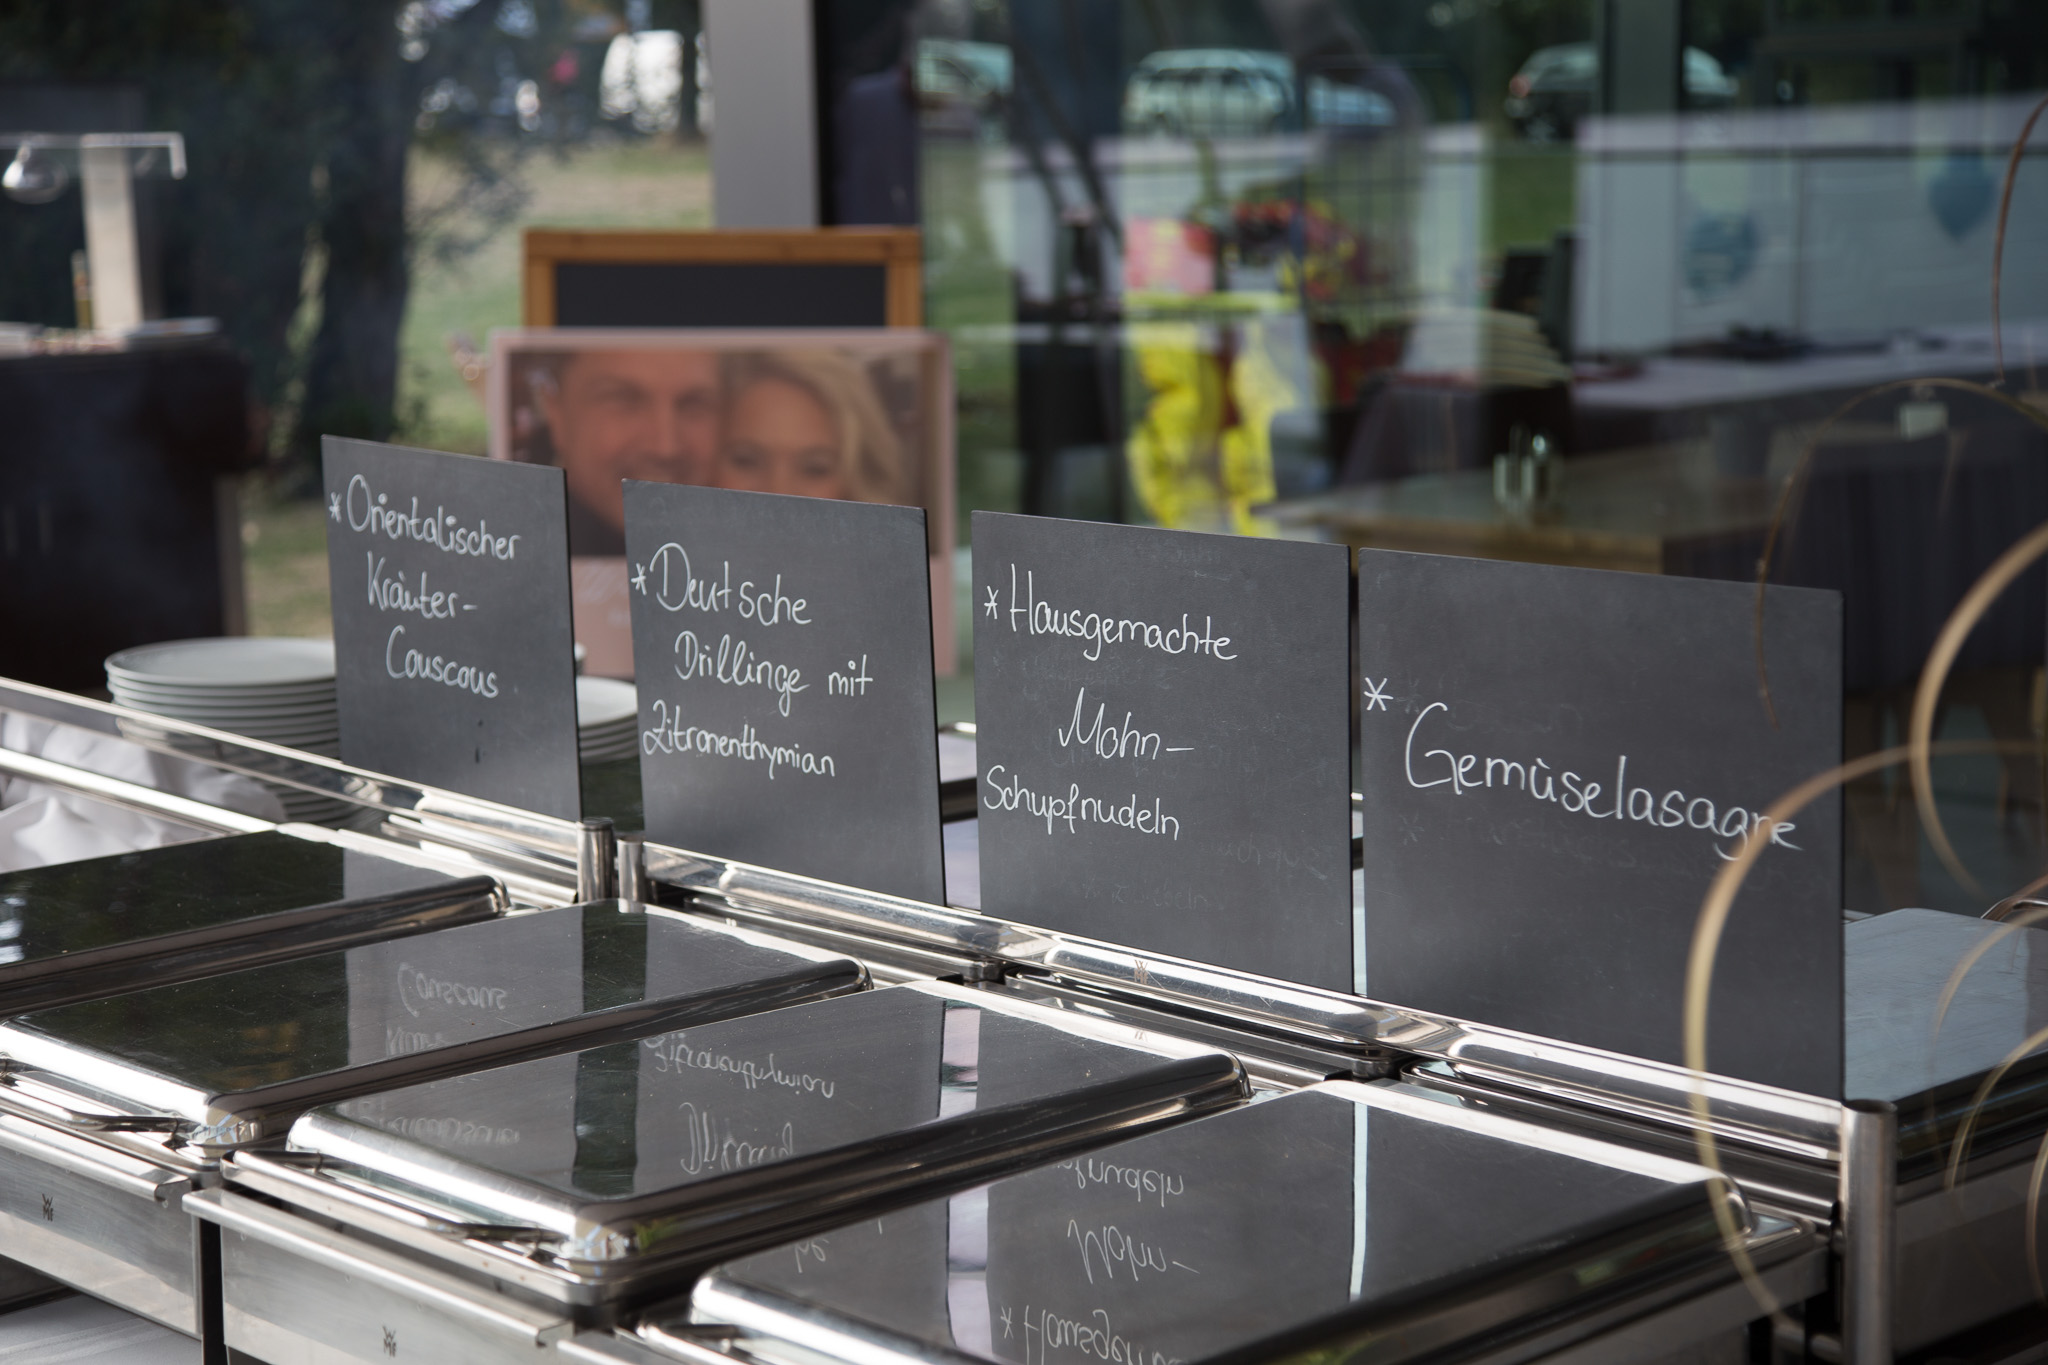 *Orientalischer
Kräuter-
Couscous
*Deutsche
Drillinge mit
Zitronenthymian
*Hausgemachte
Mohn-
Schupfnudeln
*Gemüselasagne
WMF
WMF
WMF